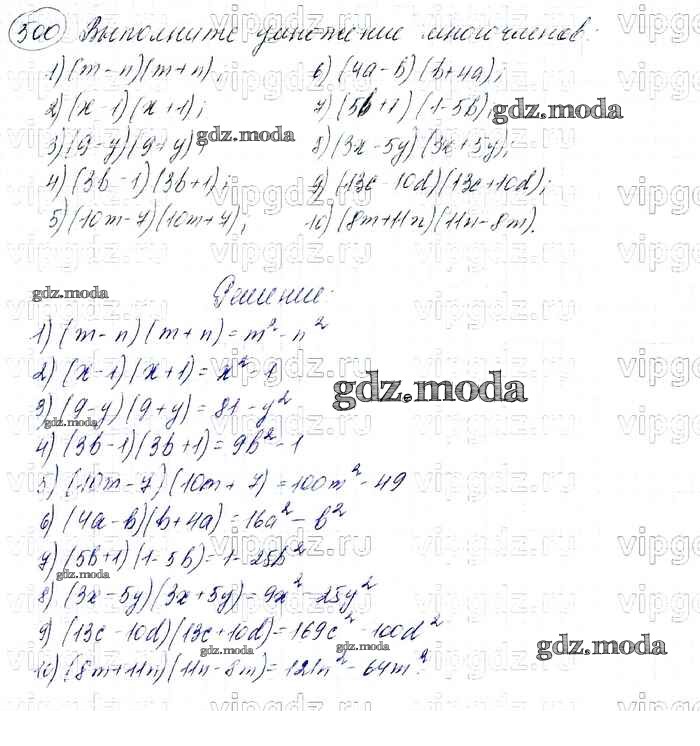 500 Выполните умножение многочленов:
1) (m - n)(m + n);
2) (x - 1)(x + 1);
3) (9 - y)(9 + y);
4) (3b - 1)(3b + 1);
5) (10m - 7)(10m + 7);
6) (4a - b)(b + 4a);
7) (5b + 1)(1 - 5b);
8) (3x - 5y)(3x + 5y);
9) (13c - 10d)(13c + 10d);
10) (8m + 11n)(11n - 8m).
Решение:
1) (m - n)(m + n) = m² - n²
2) (x - 1)(x + 1) = x² - 1
3) (9 - y)(9 + y) = 81 - y²
4) (3b - 1)(3b + 1) = 9b² - 1
5) (10m - 7)(10m + 7) = 100m² - 49
6) (4a - b)(b + 4a) = 16a² - b²
7) (5b + 1)(1 - 5b) = 1 - 25b²
8) (3x - 5y)(3x + 5y) = 9x² - 25y²
9) (13c - 10d)(13c + 10d) = 169c² - 100d²
10) (8m + 11n)(11n - 8m) = 121n² - 64m².
gdz.moda
vipgdz.ru